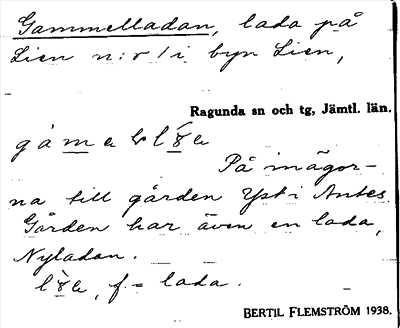 Gammelladan, lada på
Lien n:r 1 i byn Lien,
Ragunda sn och tg, Jämtl. län.
På inägor-
na till gården Yst i Antes
Gården har även en lada,
Nyladan.
f = lada.
BERTIL FLEMSTRÖM 1938.